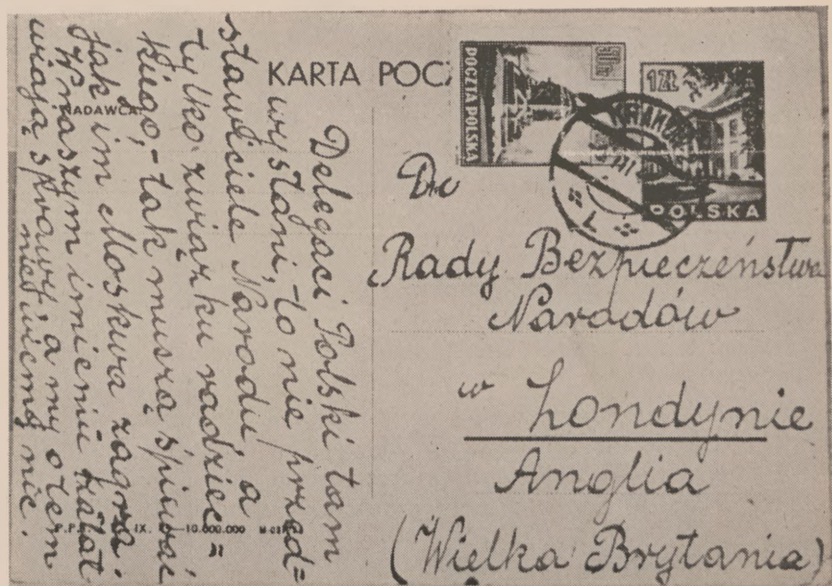 KARTA POCZ
NADAWCA:
POCZTA POLSKA
1ZŁ
POLSKA
KRAKÓW
1
Do
Rady Bezpieczeństwa
Narodów
w Londynie
Anglia
(Wielka Brytania)
Delegaci Polski tam
wysłani, to nie przed=
stawiciele Narodu a
tylko związku radziec=
kiego, - tak muszą śpiewać
jak im Moskwa zagra.
W naszym imieniu załat
wiają sprawy, a my otem
nie wiemy nic.
IX. - 10.000.000